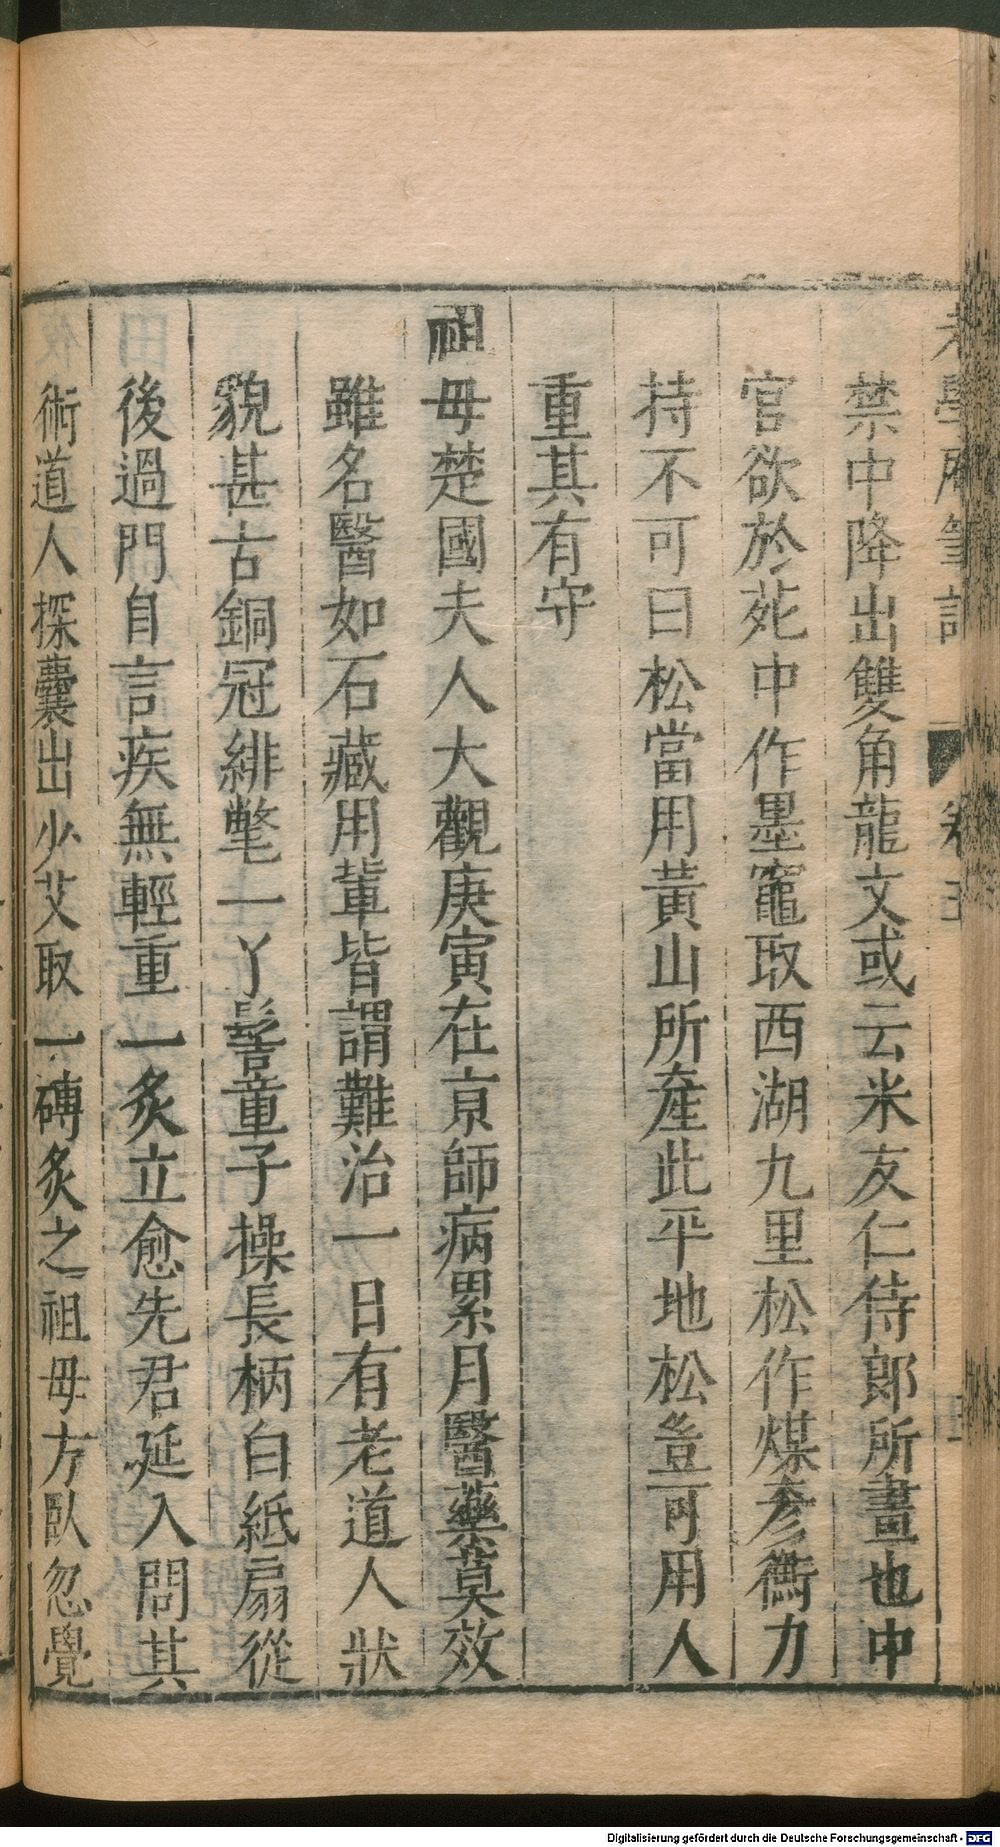 老學庵筆記 卷五
禁中降出雙角龍文或云米友仁侍郎所畫也中
官欲於苑中作墨竈取西湖九里松作煤彥衡力
持不可曰松當用黃山所產此平地松豈可用人
重其有守
祖母楚國夫人大觀庚寅在京師病累月醫藥莫效
雖名醫如石藏用輩皆謂難治一日有老道人狀
貌甚古銅冠緋氅一丫髻童子操長柄白紙扇從
後過門自言疾無輕重一炙立愈先君延入問其
術道人探囊出少艾取一磚炙之祖母方臥忽覺
Digitalisierung gefördert durch die Deutsche Forschungsgemeinschaft - DFG